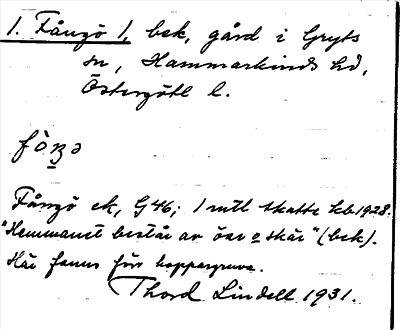 1. Fångö 1, bek, gård i Gryts
sn, Hammarkinds hd,
Östergötl l.
Fångö ek, G46; 1 mtl skatte Kb 1928.
"Hemmanet består av öar o skär" (bek).
Här fanns förr koppargruva.
Thord Lindell 1931.